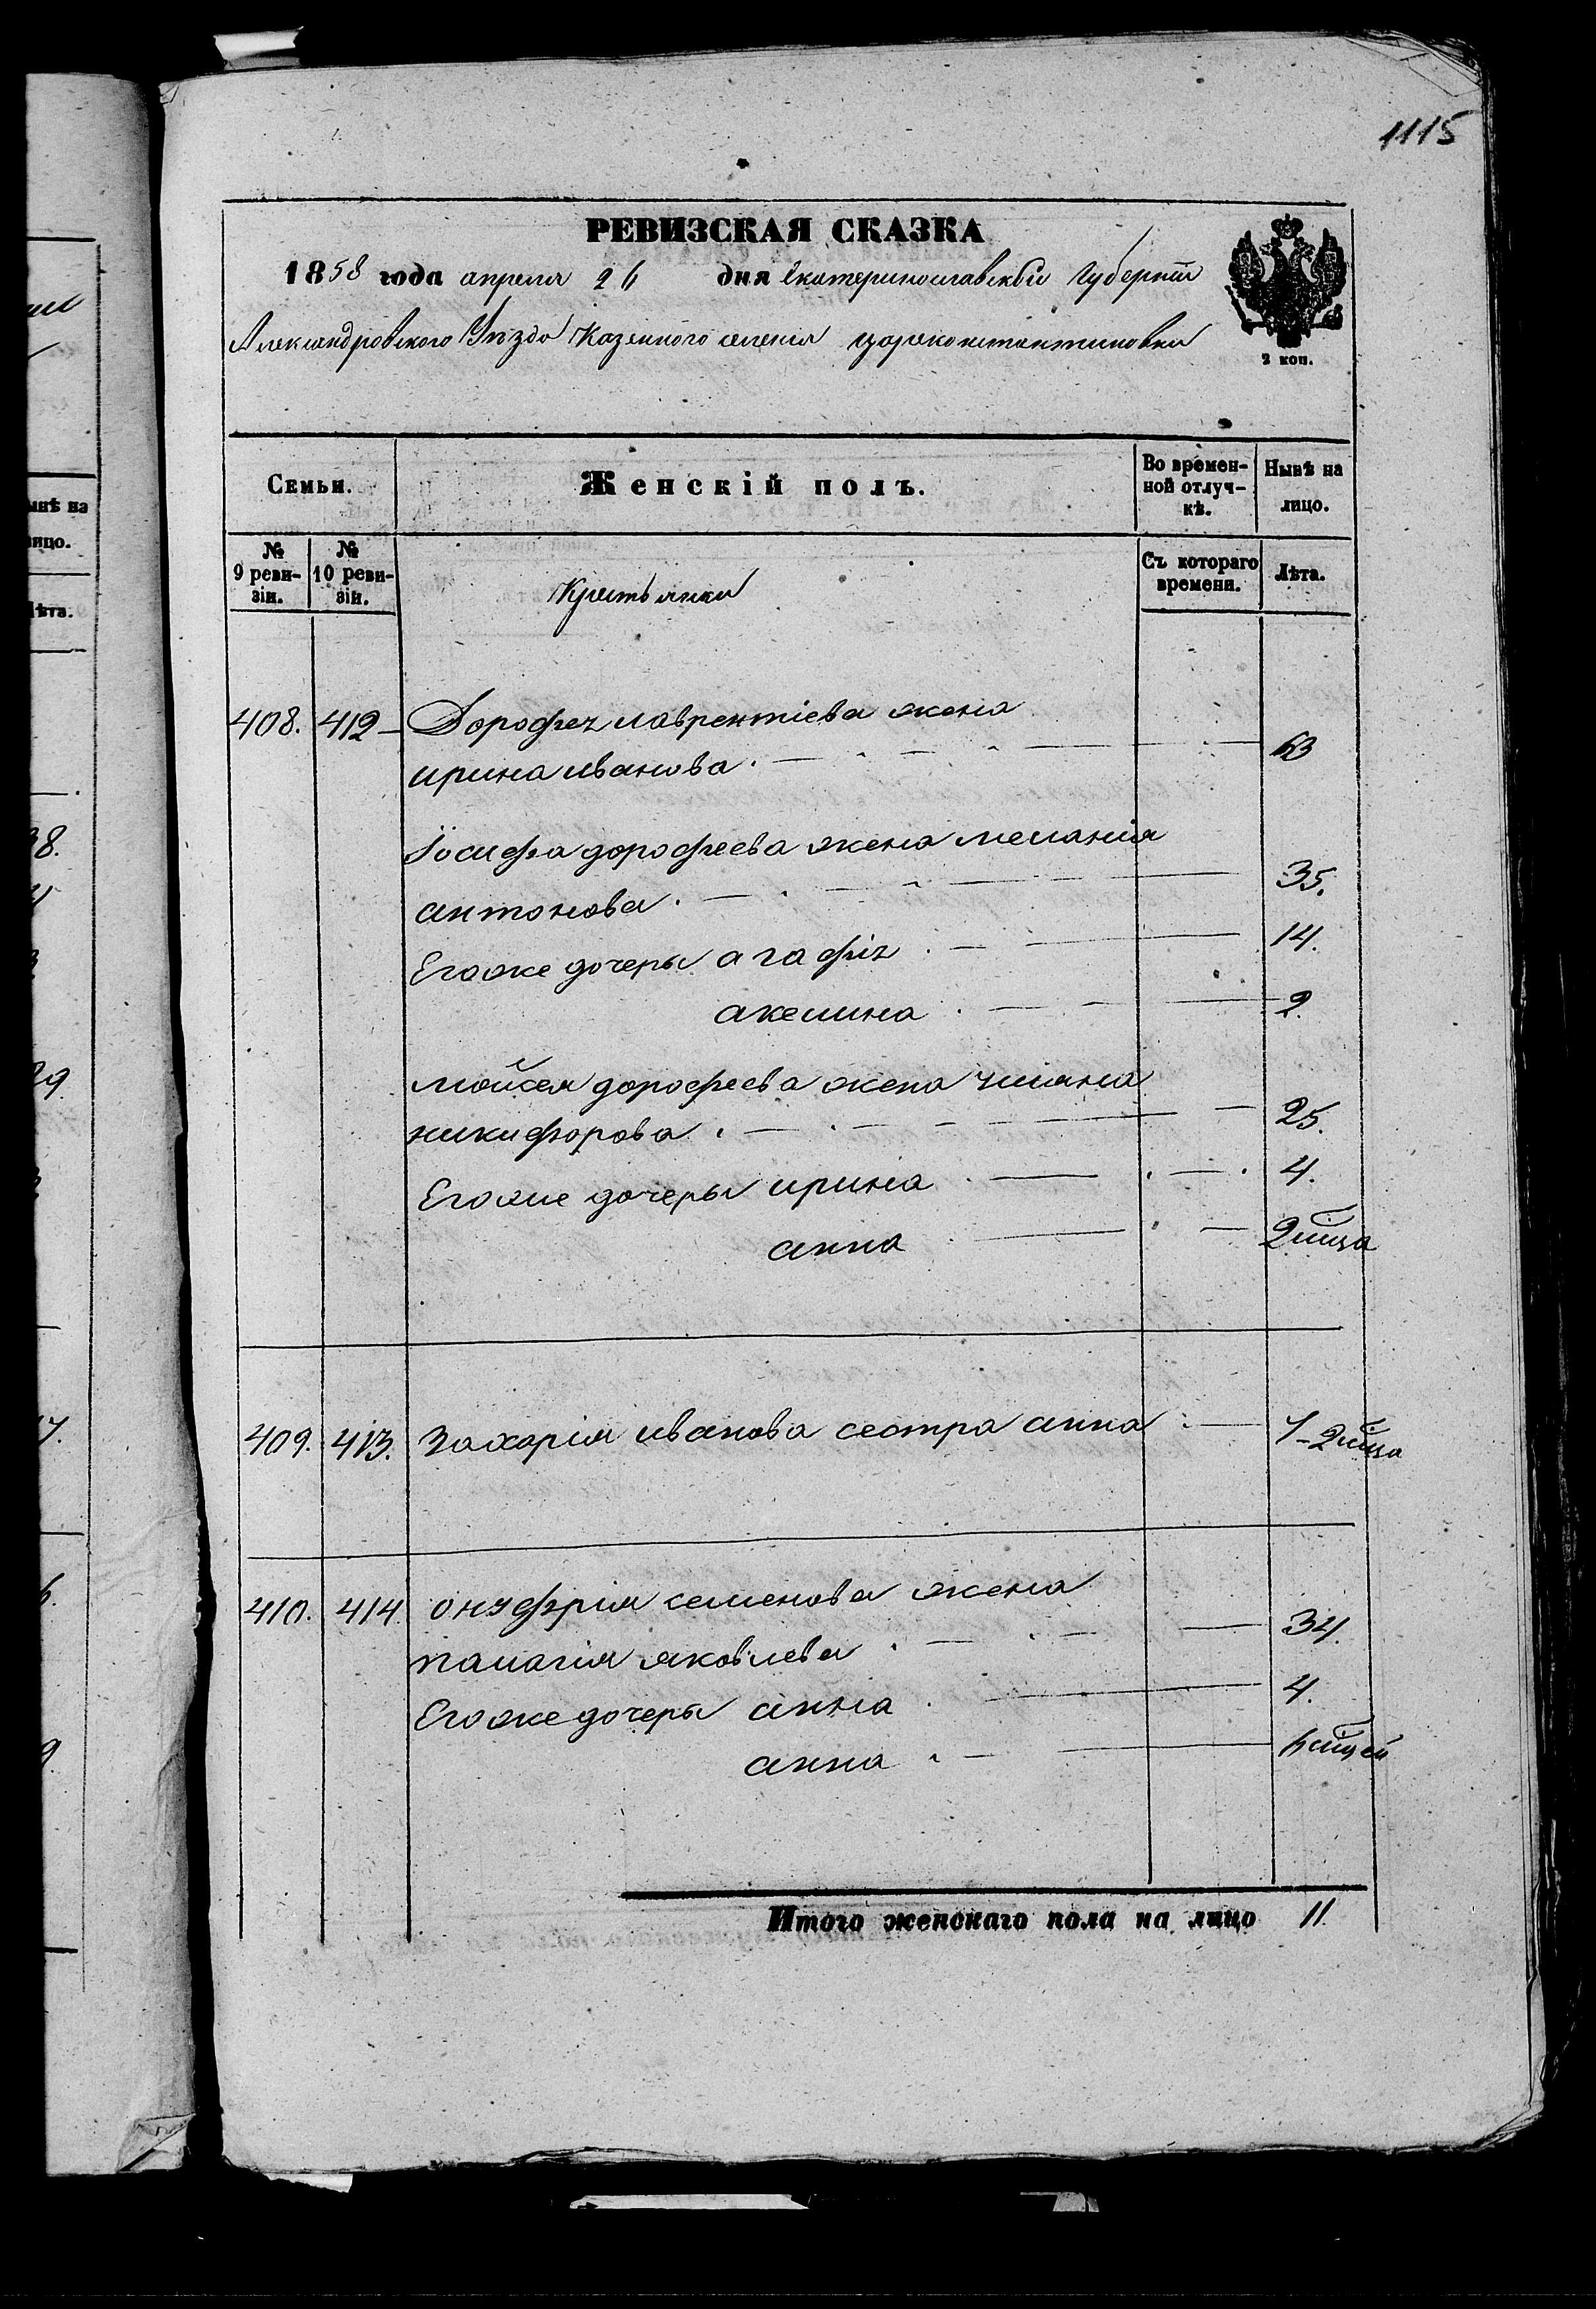 1115
РЕВИЗСКАЯ СКАЗКА
1858 года апреля 26 дня Екатеринославской Губернiи
Александровского Уѣзда Казенного селенiя Цареконстантиновки
2 коп.
Семьи. Женскій полъ. Во временной отлучкѣ. Нынѣ на лицо.
№ 9 ревизіи. № 10 ревизіи. Крестьянки Съ котораго времени. Лѣта.
408. 412 Дорофея лаврентіева жена
ирина иванова. 63
Іосифа дорофеева жена меланія
антонова. 35.
Егоже дочеры агафія 14.
акелина 2.
мойсея дорофеева жена улияна
никифорова. 25.
Егоже дочеры ирина 4.
анна 2 мца
409. 413. Захарія иванова сестра анна 1-2 мца
410. 414 онуфрія семенова жена
палагія яковлева 34.
Егоже дочеры анна 4.
анна 6 мцей
Итого женскаго пола на лицо 11.